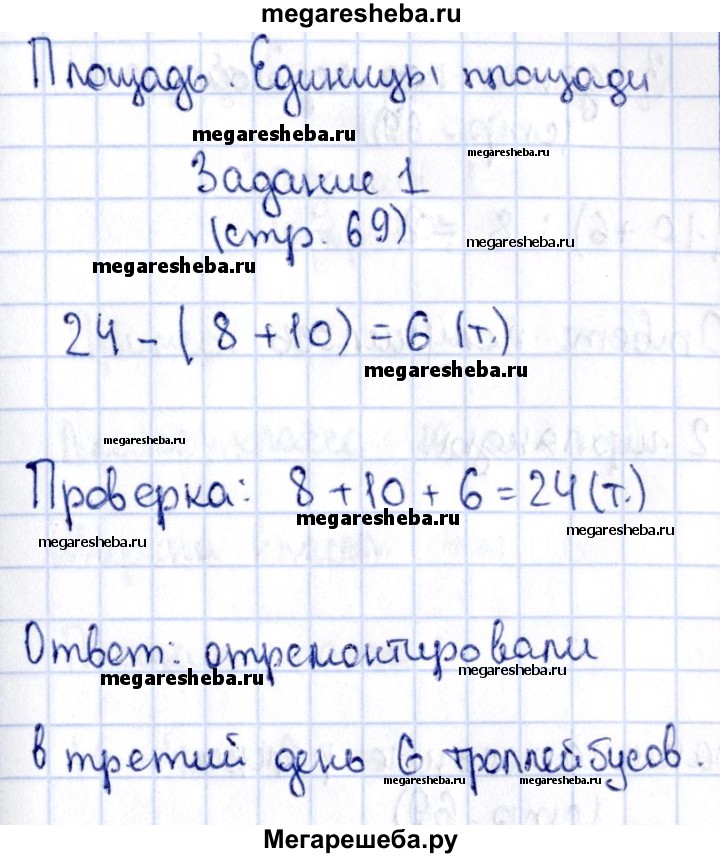 megaresheba.ru
Площадь. Единицы площади
megaresheba.ru
megaresheba.ru
Задание 1
(стр. 69)
megaresheba.ru
megaresheba.ru
24 - (8 + 10) = 6 (т.)
megaresheba.ru
megaresheba.ru
Проверка: 8 + 10 + 6 = 24 (т.)
megaresheba.ru
megaresheba.ru
megaresheba.ru
Ответ: отремонтировали
megaresheba.ru
megaresheba.ru
в третий день 6 троллейбусов.
megaresheba.ru
megaresheba.ru
Мегарешеба.ру